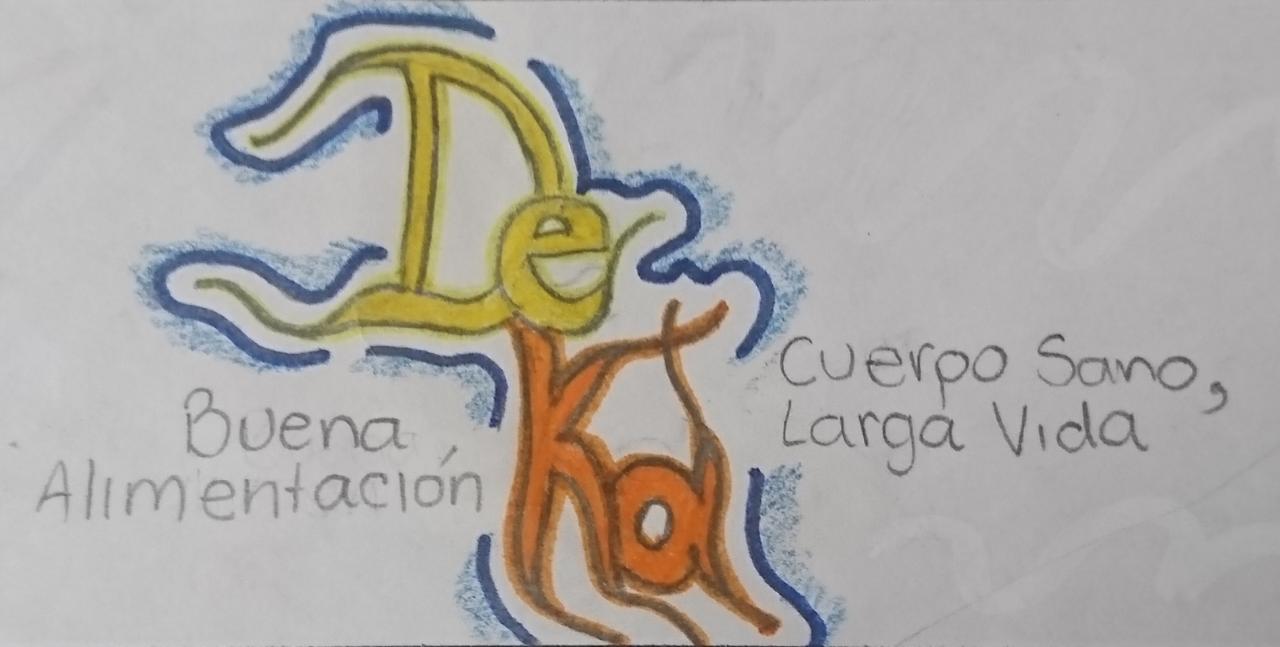 De
Ka
Buena
Alimentación
Cuerpo Sano,
Larga Vida